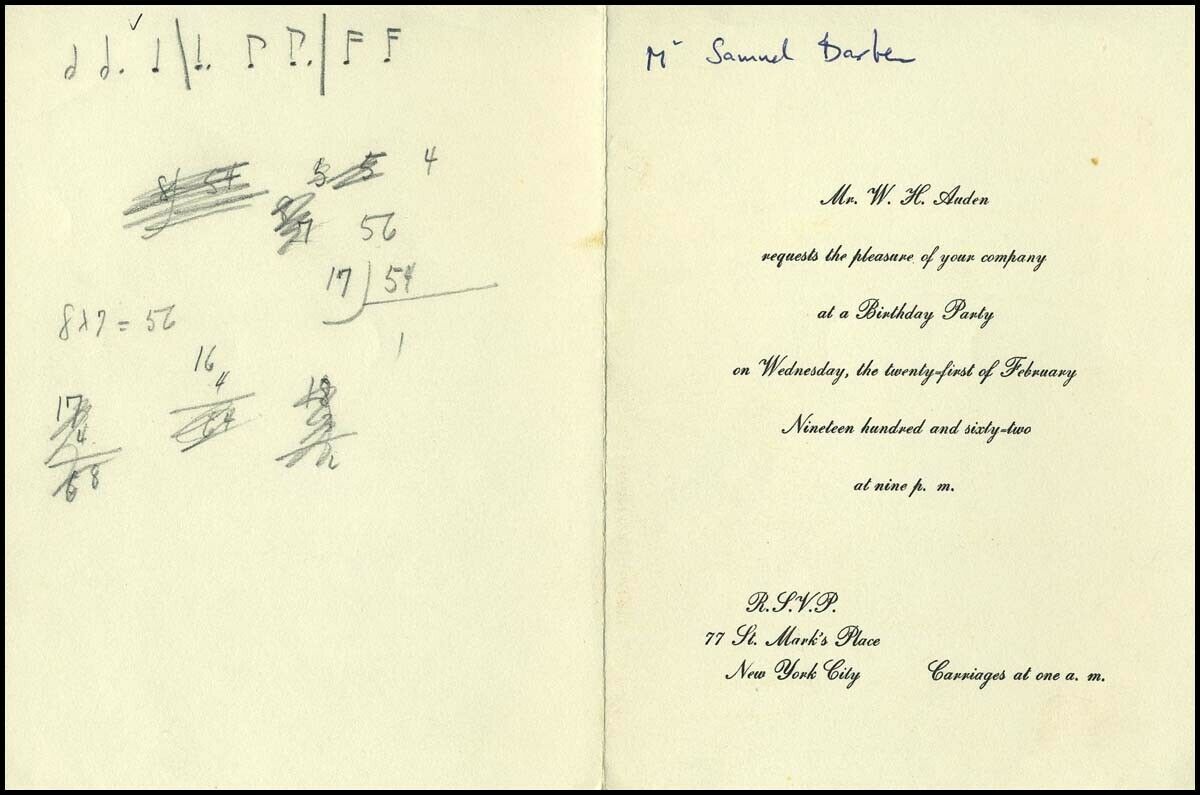 5 5 4
56
17 54
1
8x7 = 56
16
4
17
4
68
18
Mr Samuel Barber
Mr. W. H. Auden
requests the pleasure of your company
at a Birthday Party
on Wednesday, the twenty=first of February
Nineteen hundred and sixty=two
at nine p. m.
R.S.V.P.
77 St. Mark's Place
New York City Carriages at one a. m.